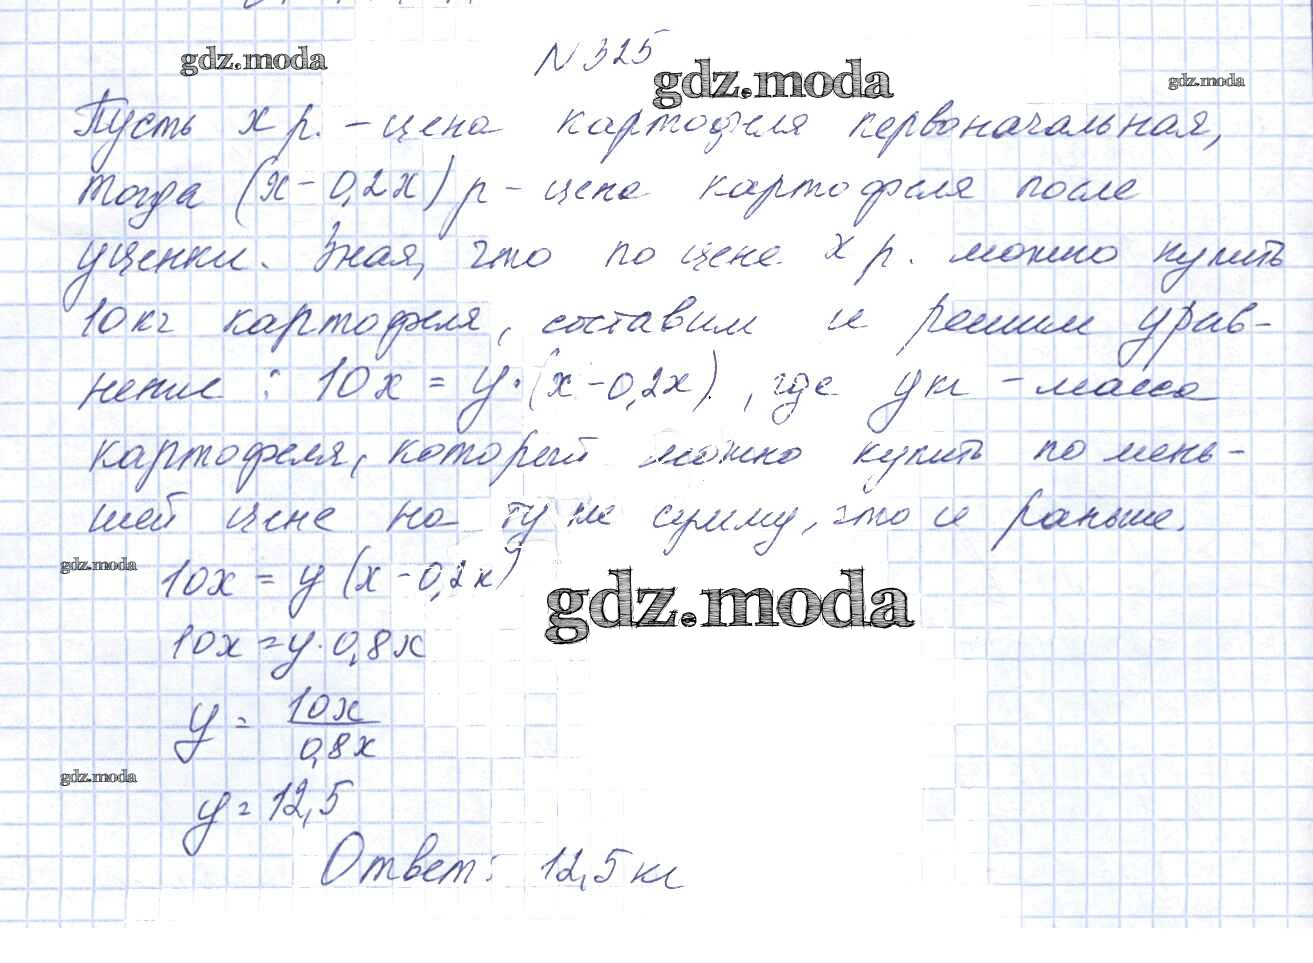 gdz.moda
№ 325
gdz.moda
gdz.moda
Пусть x р. – цена картофеля первоначальная,
тогда (x – 0,2x) р – цена картофеля после
уценки. Зная, что по цене x р. можно купить
10 кг картофеля, составим и решим урав-
нение : 10x = y·(x – 0,2x)., где y кг – масса
картофеля, который можно купить по мень-
шей цене на ту же сумму, что и раньше.
gdz.moda
10x = y (x – 0,2x)
gdz.moda
10x = y · 0,8x
y = 10x / 0,8x
gdz.moda
y = 12,5
Ответ: 12,5 кг